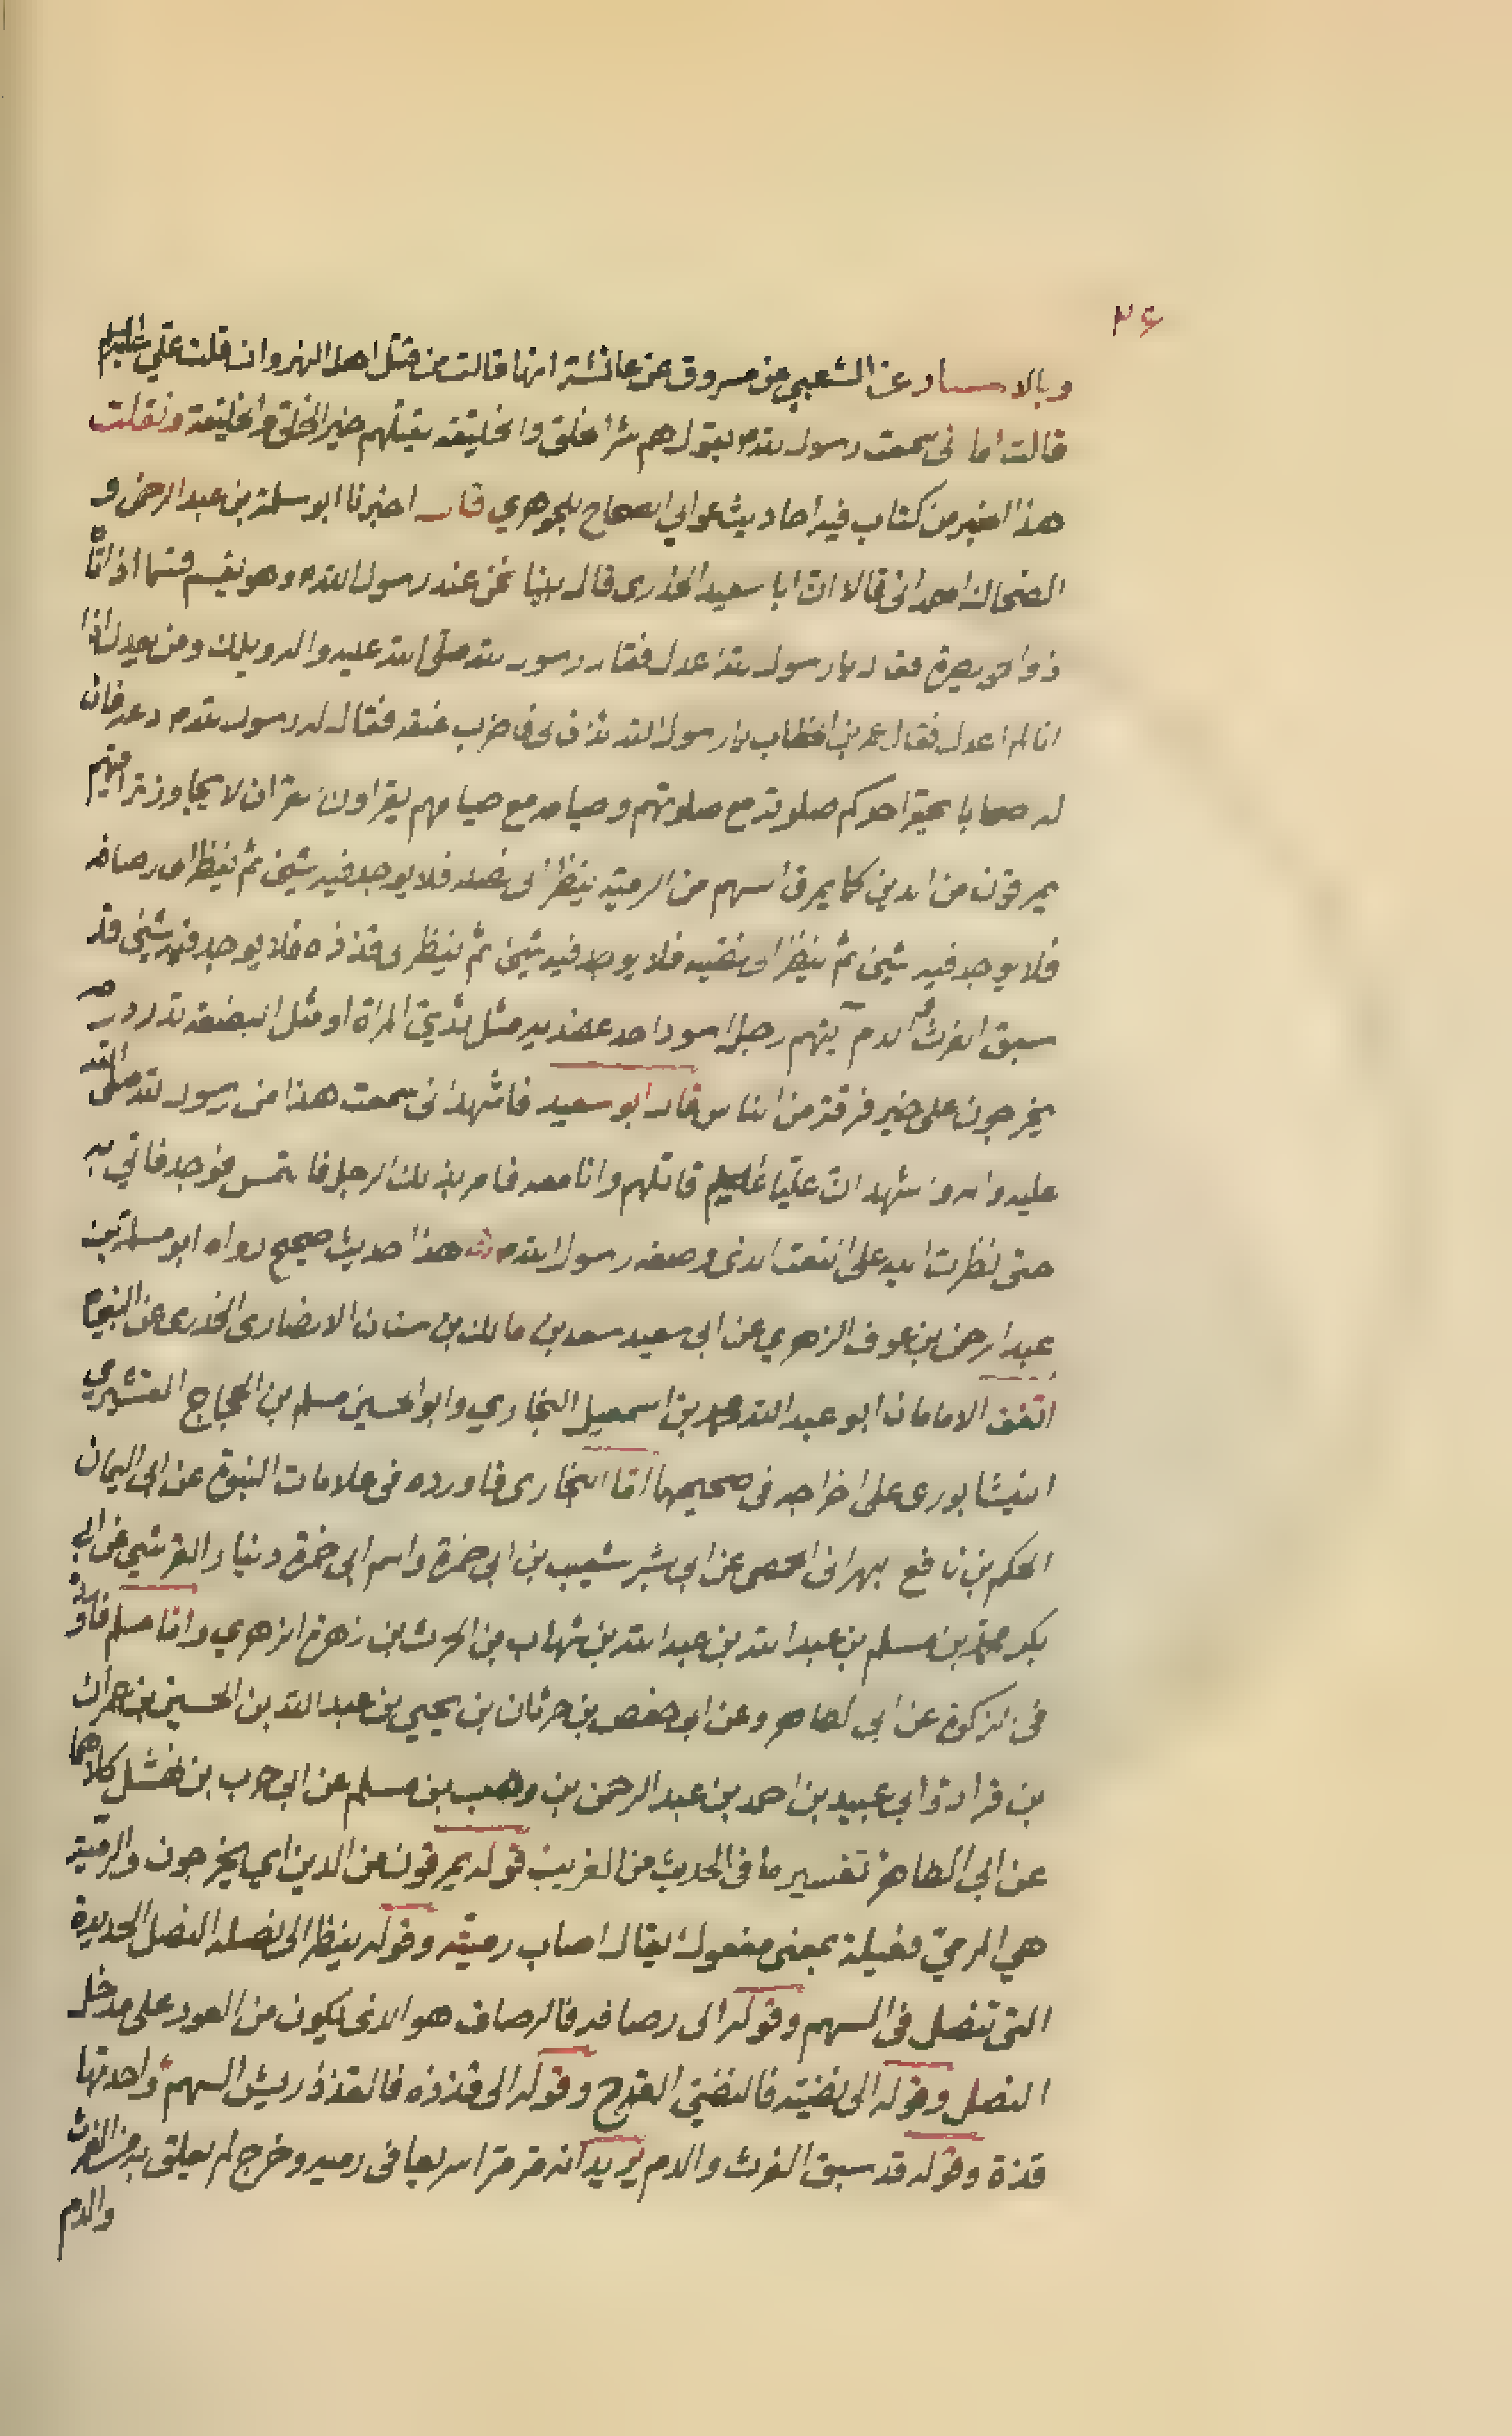 ٣۶
وبالاسناد عن الشعبي عن مسروق عن عائشة انها قالت من قتل اهل النهروان قلت علي عليه السلم
قالت اما اني سمعت رسول الله يقول هم شر الخلق والخليقة يقتلهم خير الخلق والخليقة ونقلت
هذا الخبر من كتاب فيه احاديث عوالي الصحاح للجوهري قال اخبرنا ابو سلمة بن عبد الرحمن و
الضحاك الهمداني قالا ان ابا سعيد الخدري قال بينا نحن عند رسول الله وهو يقسم قسما اذ اتاه
ذو الخويصرة فقال يا رسول الله اعدل فقال رسول الله صلى الله عليه واله ويلك ومن يعدل اذا
انا لم اعدل فقال عمر بن الخطاب يا رسول الله ائذن لي في ضرب عنقه فقال له رسول الله دعه فان
له صحابا يحقر احدكم صلوته مع صلوتهم وصيامه مع صيامهم يقراون القران لا يجاوز تراقيهم
يمرقون من الدين كما يمرق السهم من الرمية ينظر الى نصله فلا يوجد فيه شيئ ثم ينظر الى رصافه
فلا يوجد فيه شيئ ثم ينظر الى نضيه فلا يوجد فيه شيئ ثم ينظر الى قذذه فلا يوجد فيه شيئ قد
سبق الفرث والدم آيتهم رجل اسود احد عضديه مثل ثدي المراة او مثل البضعة تدردر
يخرجون على خير فرقة من الناس قال ابو سعيد فاشهد اني سمعت هذا من رسول الله صلى الله
عليه واله واشهد ان عليا عليه السلم قاتلهم وانا معه فامر بذلك الرجل فالتمس فوجد فاتي به
حتى نظرت اليه على النعت الذي وصفه رسول الله هذا حديث صحيح رواه ابو سلمة بن
عبد الرحمن بن عوف الزهري عن ابي سعيد سعد بن مالك بن سنان الانصاري الخدري عن النبي
اتفق الامامان ابو عبد الله محمد بن اسمعيل البخاري وابو الحسين مسلم بن الحجاج القشيري
النيشابوري على اخراجه في صحيحهما اما البخاري فاورده في علامات النبوة عن ابي اليمان
الحكم بن نافع البهراني الحمصي عن ابي بشر شعيب بن ابي حمزة واسم ابي حمزة دينار القرشي عن ابي
بكر محمد بن مسلم بن عبد الله بن عبد الله بن شهاب بن الحرث بن زهرة الزهري واما مسلم فاورده
في الزكوة عن ابي الطاهر وعن ابي حفص بن حرثان بن يحيي بن عبد الله بن الحسين بن حمران
بن قراد وابي عبيد بن احمد بن عبد الرحمن بن وهب بن مسلم عن ابي حرب بن نهشل كلاهما
عن ابي الطاهر تفسير ما في الحديث من الغريب قوله يمرقون من الدين اي يخرجون والرمية
هي الرمي فعيلة بمعنى مفعول يقال اصاب رميته وقوله ينظر الى نصله النصل الحديدة
التي تنصل في السهم وقوله الى رصافه فالرصاف هو الذي يكون من العود على مدخل
النصل وقوله الى نضيته فالنضي القدح وقوله الى قذذه فالقذذ ريش السهم واحدتها
قذة وقوله قد سبق الفرث والدم يريد انه مر مرا سريعا في رميه وخرج لم يعلق به من الفرث
والدم